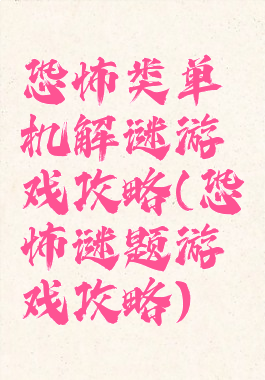 恐怖类单
机解谜游
戏攻略(恐
怖谜题游
戏攻略)